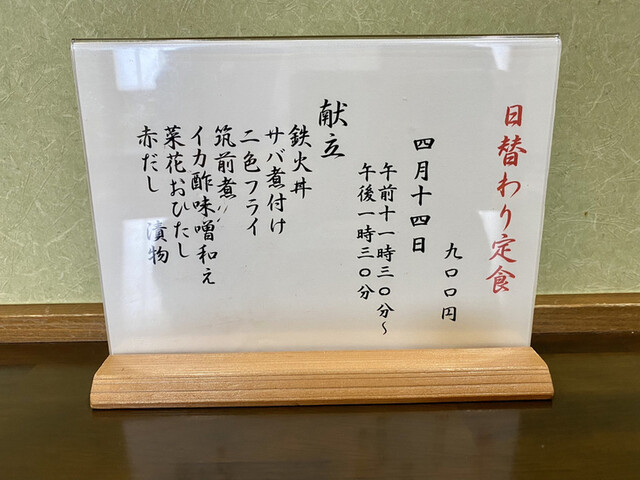 日替わり定食
九〇〇円
四月十四日
午前十一時三〇分～
午後一時三〇分
献立
鉄火丼
サバ煮付け
二色フライ
筑前煮〃
イカ酢味噌和え
菜花おひたし
赤だし 漬物